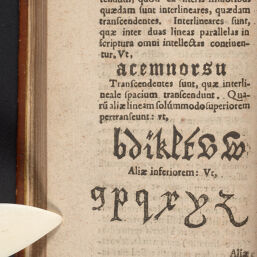 quædam sunt interlineares, quædam
transcendentes. Interlineares sunt,
quæ inter duas lineas parallelas in
scriptura omni intellectæ continen-
tur. Vt,
acemnorsu
Transcendentes sunt, quæ interli-
neale spacium transcendunt. Qua-
rũ aliæ lineam solũmmodo superiorem
pertranseunt: vt,
bdiklſvw
Aliæ inferiorem: Vt,
gpqxyz
Aliæ